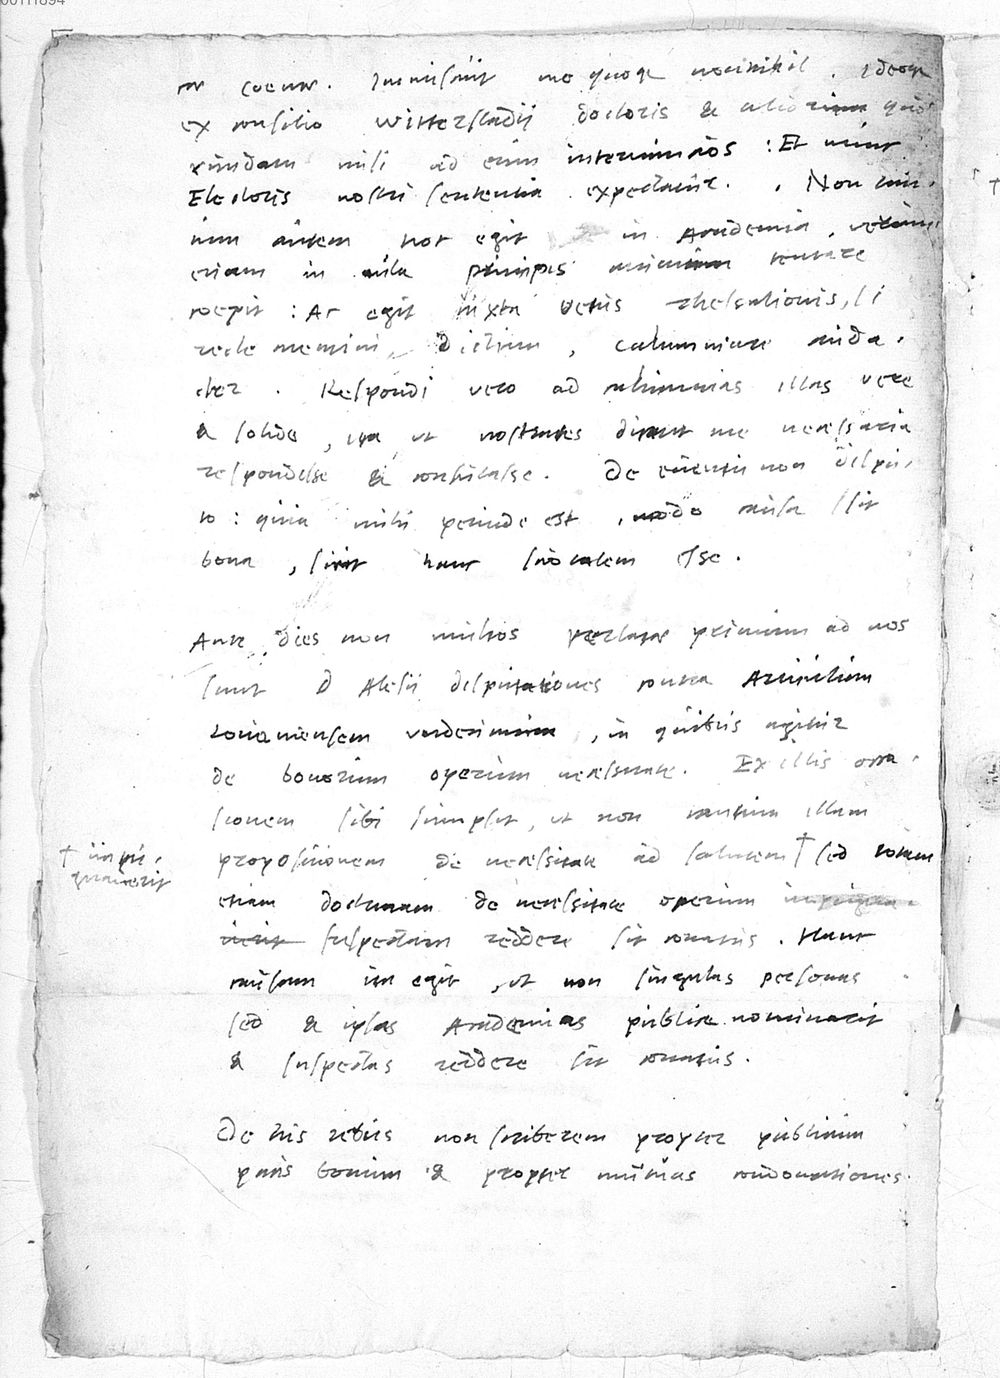 00111894
coenae. Immiscuit me quoque nonnihil. Ideoque
ex consilio Witterstadii doctoris & aliorum
misi ad eum : Et nunc
Electoris nostri sententia expectatur. Non
autem hoc egit in Academia, verum
etiam in aula principis tentare
coepit : Ac egit iuxta vetus, si
recte memini, dictum, calumniare auda-
cter. Respondi vero ad calumnias illas vere
& solide, ita ut nostrates dicant me necessaria
respondisse & confutasse. De eventu non dispu-
to : quia mihi perinde est, modo causa sit
bona, sicut hanc scio talem esse.
Ante dies non multos perlatae primum ad nos
sunt D Alesii disputationes contra
Lovaniensem, in quibus agitur
de bonorum operum necessitate. Ex illis occa-
sionem sibi sumpsit, ut non tantum illam
propositionem de necessitate ad salutem † sed totam
† impu-
gnaverit
etiam doctrinam de necessitate operum
suspectam reddere sit conatus. Hanc
causam ita egit, ut non singulas personas
sed & ipsas Academias publice nominarit
& suspectas reddere sit conatus.
De his rebus non scriberem propter publicum
pacis bonum & propter mutuas condonationes.